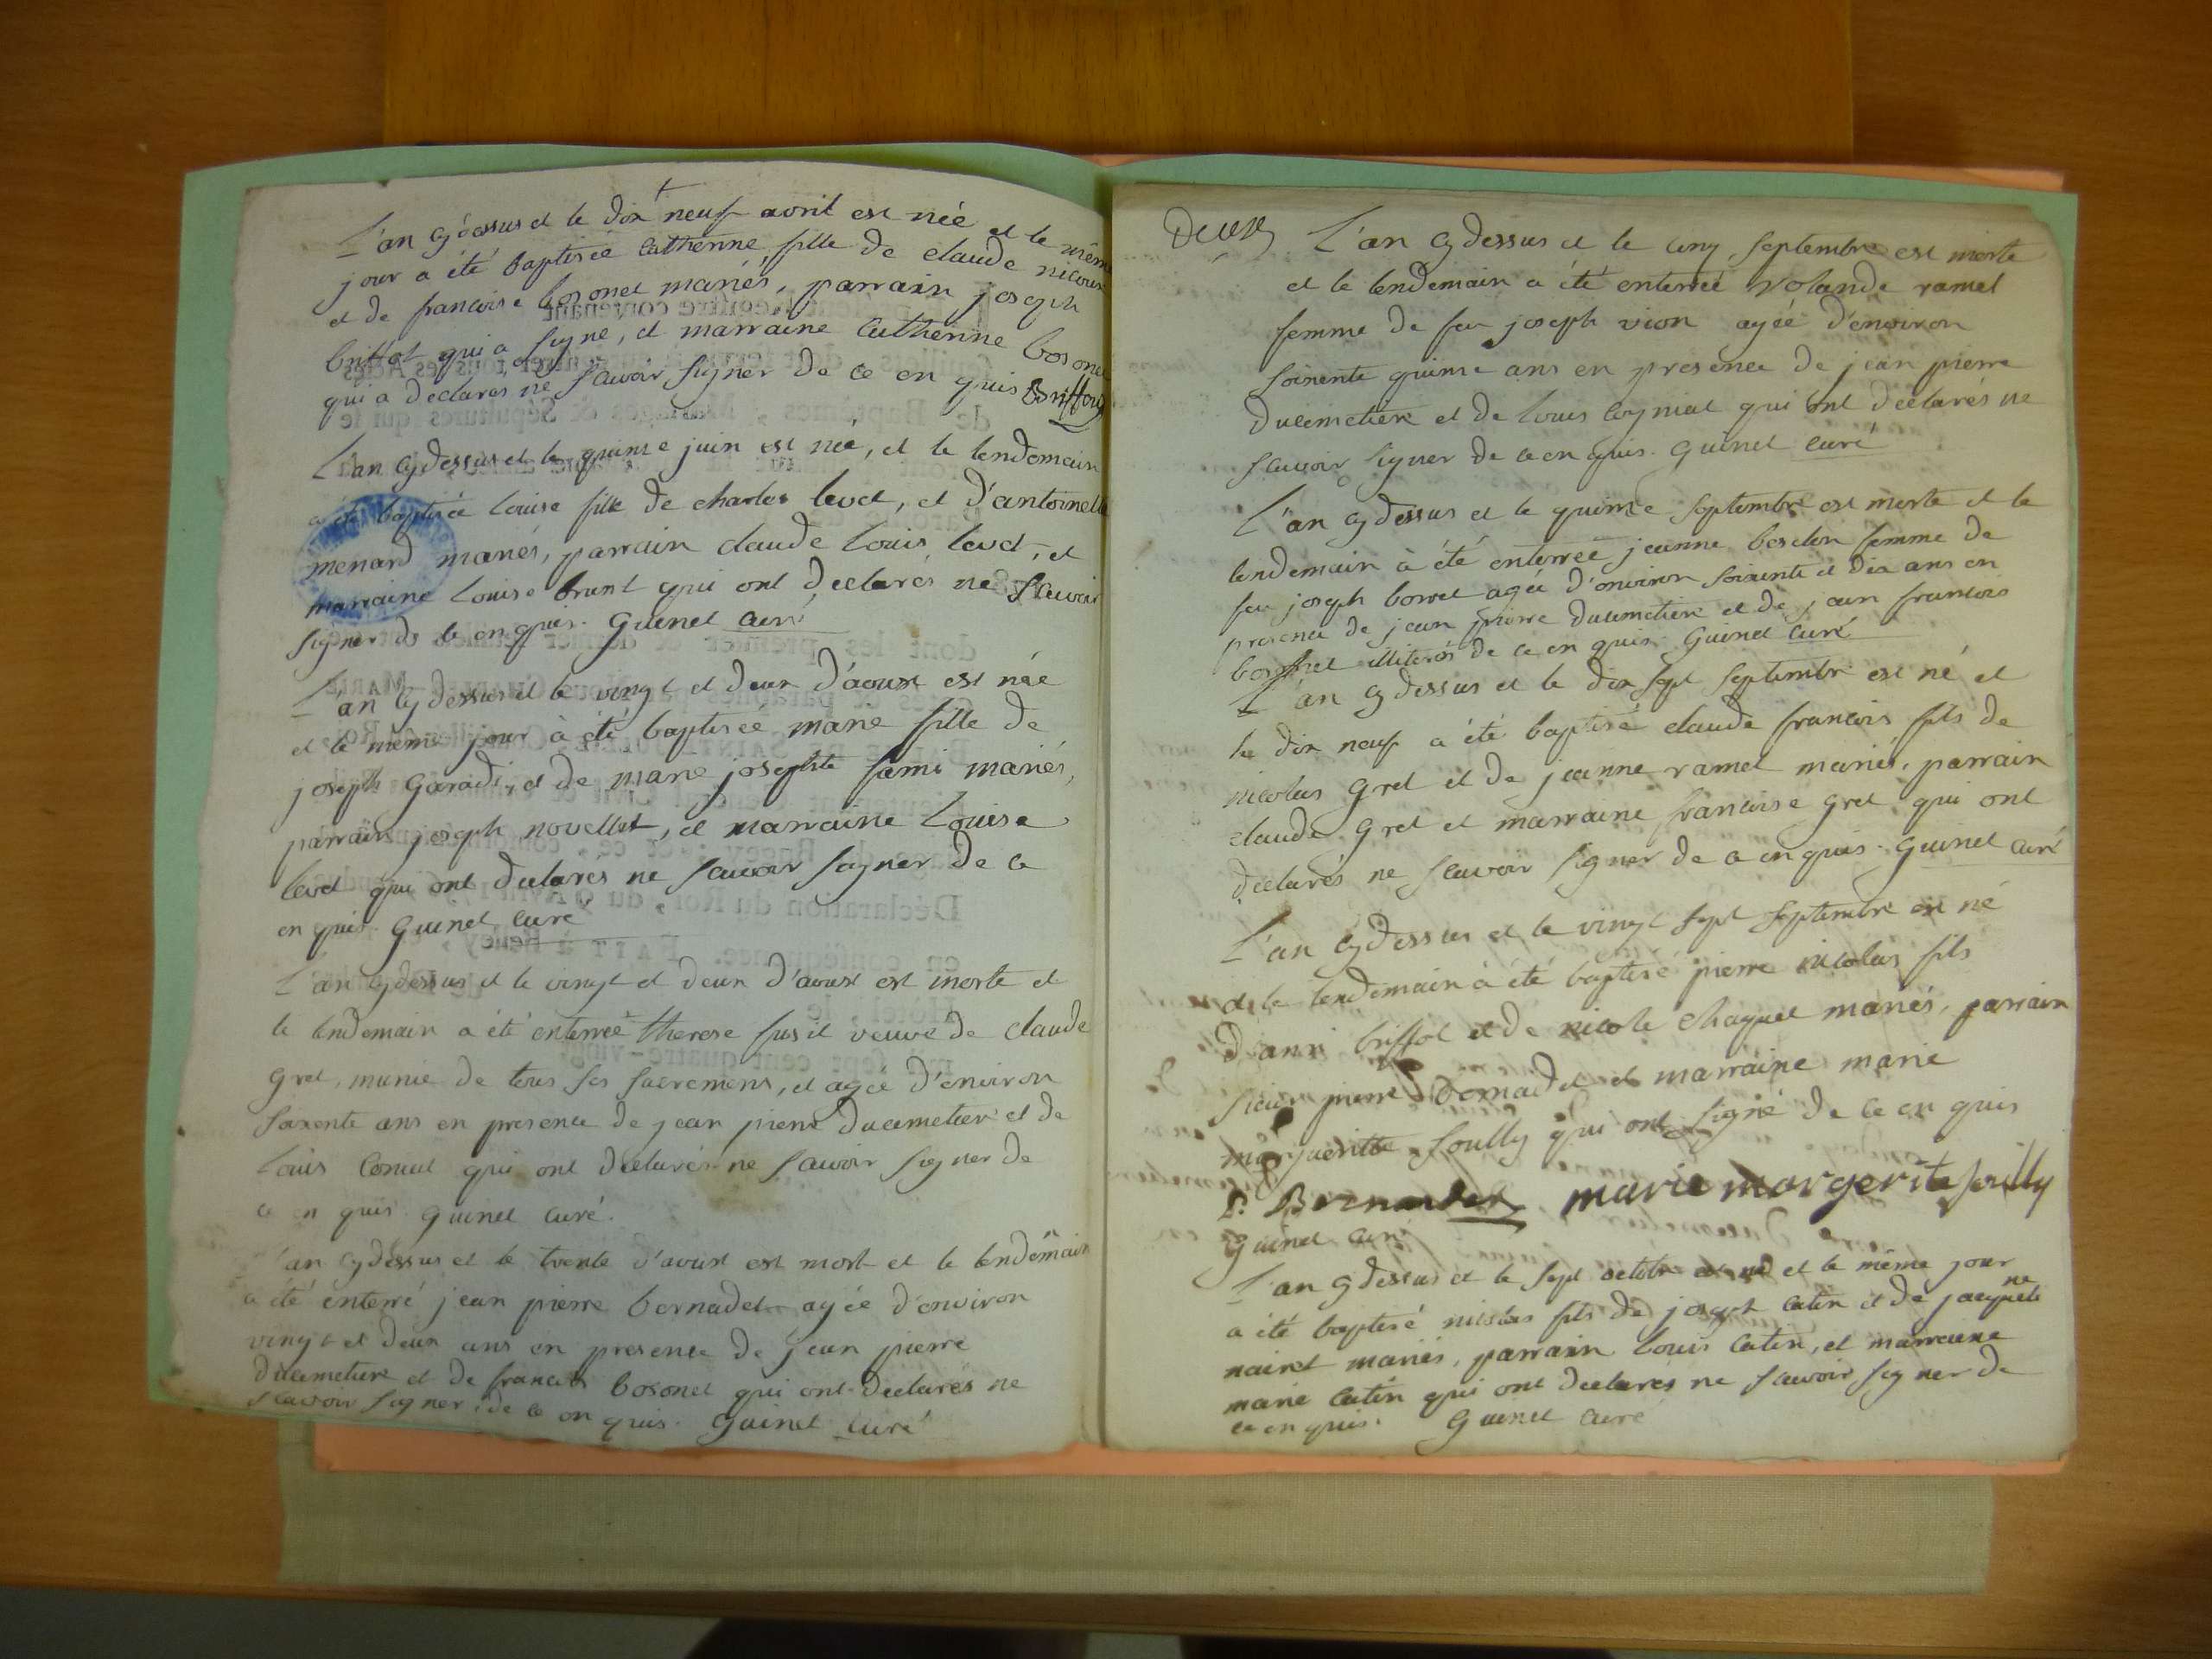 L'an cy dessus et le dix neuf avril est née et le même
jour a été baptisée Catherine fille de claude nicoux
et de francoise bozonet mariés, parrain joseph
briffot qui a signe, et marraine Catherine bozonet
qui a declarés ne scavoir signer de ce en quis
L'an cy dessus et le quinze juin est née, et le lendemain
a été baptisée Louise fille de charles levet, et d'antoinette
menard mariés, parrain claude Louis levet, et
marraine Louise brunt qui ont declarés ne scavoir
signer de ce en quis. Guinet curé
L'an cy dessus et le vingt et deux d'aoust est née
et le même jour à été baptiseé marie fille de
joseph Garadi, et de marie josephte fami mariés,
parrain joseph novellet, et marraine Louise
levet qui ont declarés ne scavoir signer de ce
en quis. Guinet curé
L'an cy dessus et le vingt et deux d'aoust est morte et
le lendemain a été enterreé therese fusil veuve de claude
Gret, munie de tous ses sacremens, et ageé d'environ
soixente ans en presence de jean pierre Ducimetier et de
Louis Coniat qui ont declarés ne scavoir signer de
ce en quis. Guinet curé.
L'an cy dessus et le trente d'aoust est mort et le lendemain
a été enterré jean pierre bernadet agée d'environ
vingt et deux ans en presence de jean pierre
Ducimetiere et de francois bozonet qui ont declarés ne
scavoir signer, de ce en quis. Guinet curé
Deux L'an cy dessus et le cinq septembre est morte
et le lendemain a été enterreé Yolande ramel
femme de feu joseph vion ageé d'environ
soixente quinze ans en presence de jean pierre
Ducimetiere et de Louis Cogniat qui ont declarés ne
scavoir signer de ce en quis. Guinet curé
L'an cy dessus et le quinze septembre est morte et le
lendemain à été enterreé jeanne bosclon femme de
feu joseph borret ageé d'environ soixente et dix ans en
presence de jean pierre Ducimetiere et de jean francois
illiterés de ce en quis. Guinet curé
L'an cy dessus et le dix sept septembre est né et
le dix neuf a été baptisé claude francois fils de
nicolas Gret et de jeanne ramel mariés, parrain
claude Gret et marraine francoise Gret qui ont
declarés ne scavoir signer de ce en quis. Guinet curé
L'an cy dessus et le vingt sept septembre est né
et le lendemain à été baptisé pierre nicolas fils
d'anri briffot et de nicole chaquet mariés, parrain
sieur pierre Bernadet et marraine marie
marguerite soully qui ont signé de ce en quis
P. Bernardet marie margerite soully
Guinet curé
L'an cy dessus et le sept octobre est né et le même jour
a été baptisé nicolas fils de joseph catin et de jacqueline
nairet mariés, parrain Louis Catin, et marraine
marie Catin qui ont declarés ne scavoir signer de
ce en quis. Guinet curé